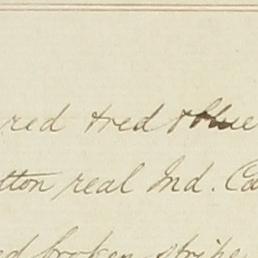 red & red & blue
tton real Ind. Ca
ed broken stripe